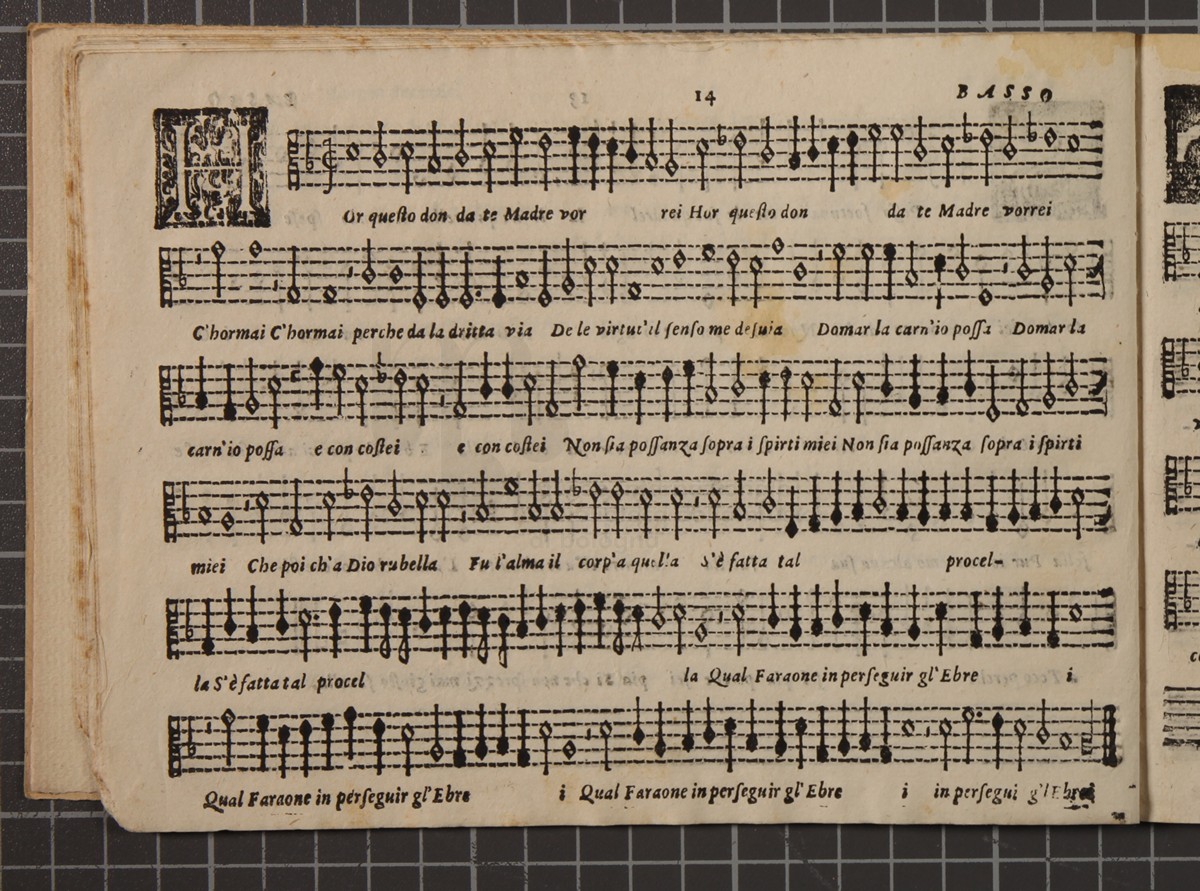 14
BASSO
HOr queſto don da te Madre vor rei Hor queſto don da te Madre vorrei
C'hormai C'hormai perche da la dritta via De le virtut'il ſenſo me deſuia Domar la carn'io poſſa Domar la
carn'io poſſa e con coſtei e con coſtei Non ſia poſſanza ſopra i ſpirti miei Non ſia poſſanza ſopra i ſpirti
miei Che poi ch'a Dio rubella Fu l'alma il corp'a quella S'è fatta tal procel-
la S'è fatta tal procel la Qual Faraone in perſeguir gl'Ebre i
Qual Faraone in perſeguir gl'Ebre i Qual Faraone in perſeguir gl'Ebre i in perſegui gl'Ebrei